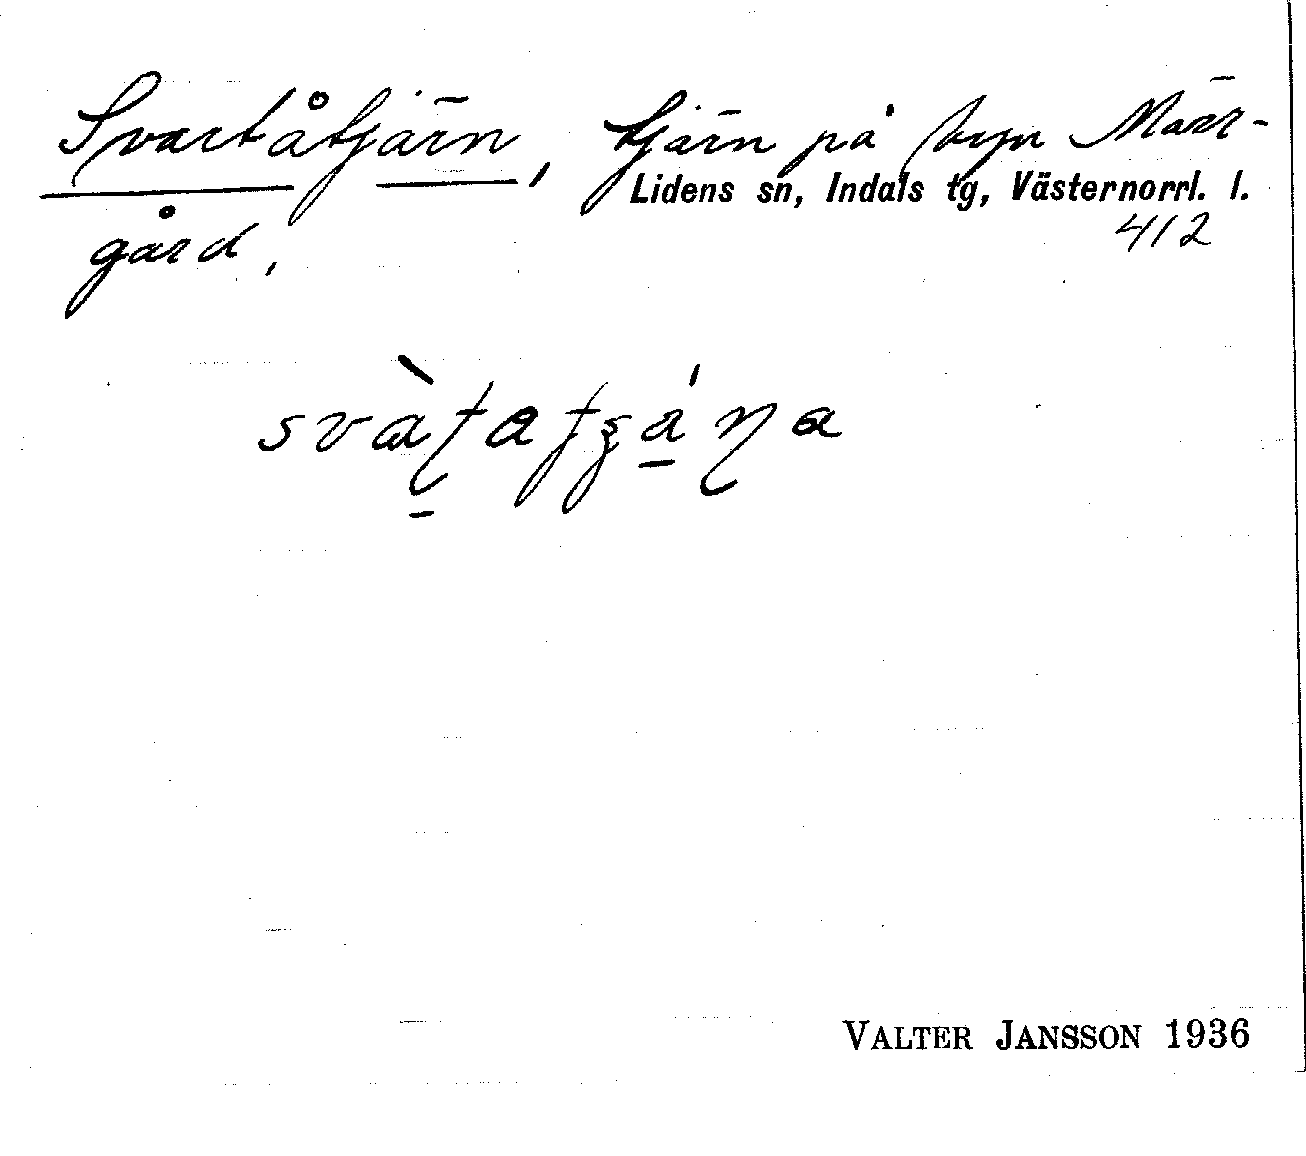 Svartåtjärn, tjärn på byn Märr-
Lidens sn, Indals tg, Västernorrl. l.
gård. 412
VALTER JANSSON 1936